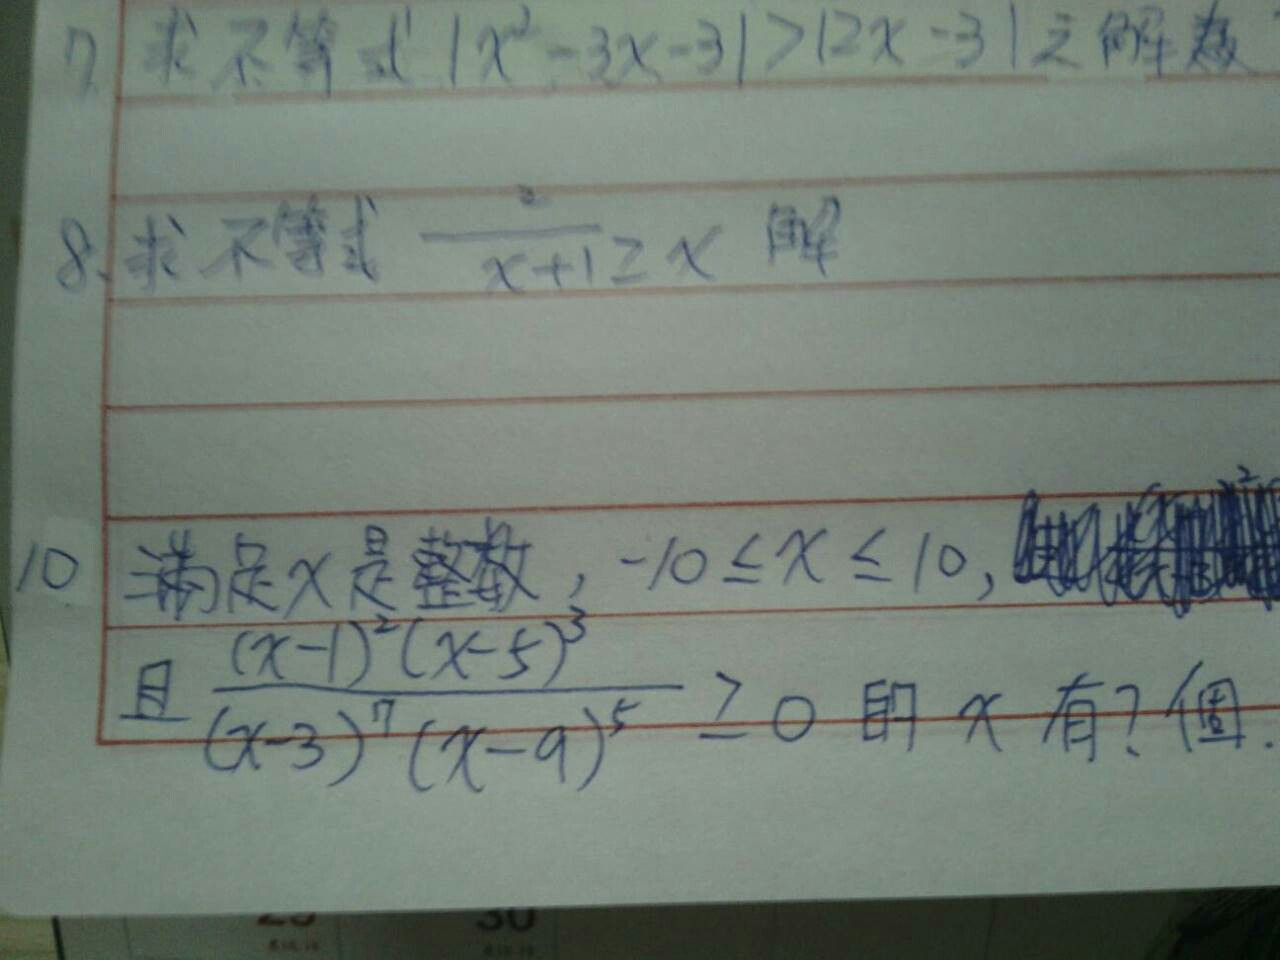 7. 求不等式 |x²-3x-3|>|2x-3| 之解
8. 求不等式 2/(x+1) ≥ x 解
10 滿足x是整數, -10≤x≤10,
且 (x-1)²(x-5)³/(x-3)⁷(x-9)⁵ ≥0 的 x 有?個.
30